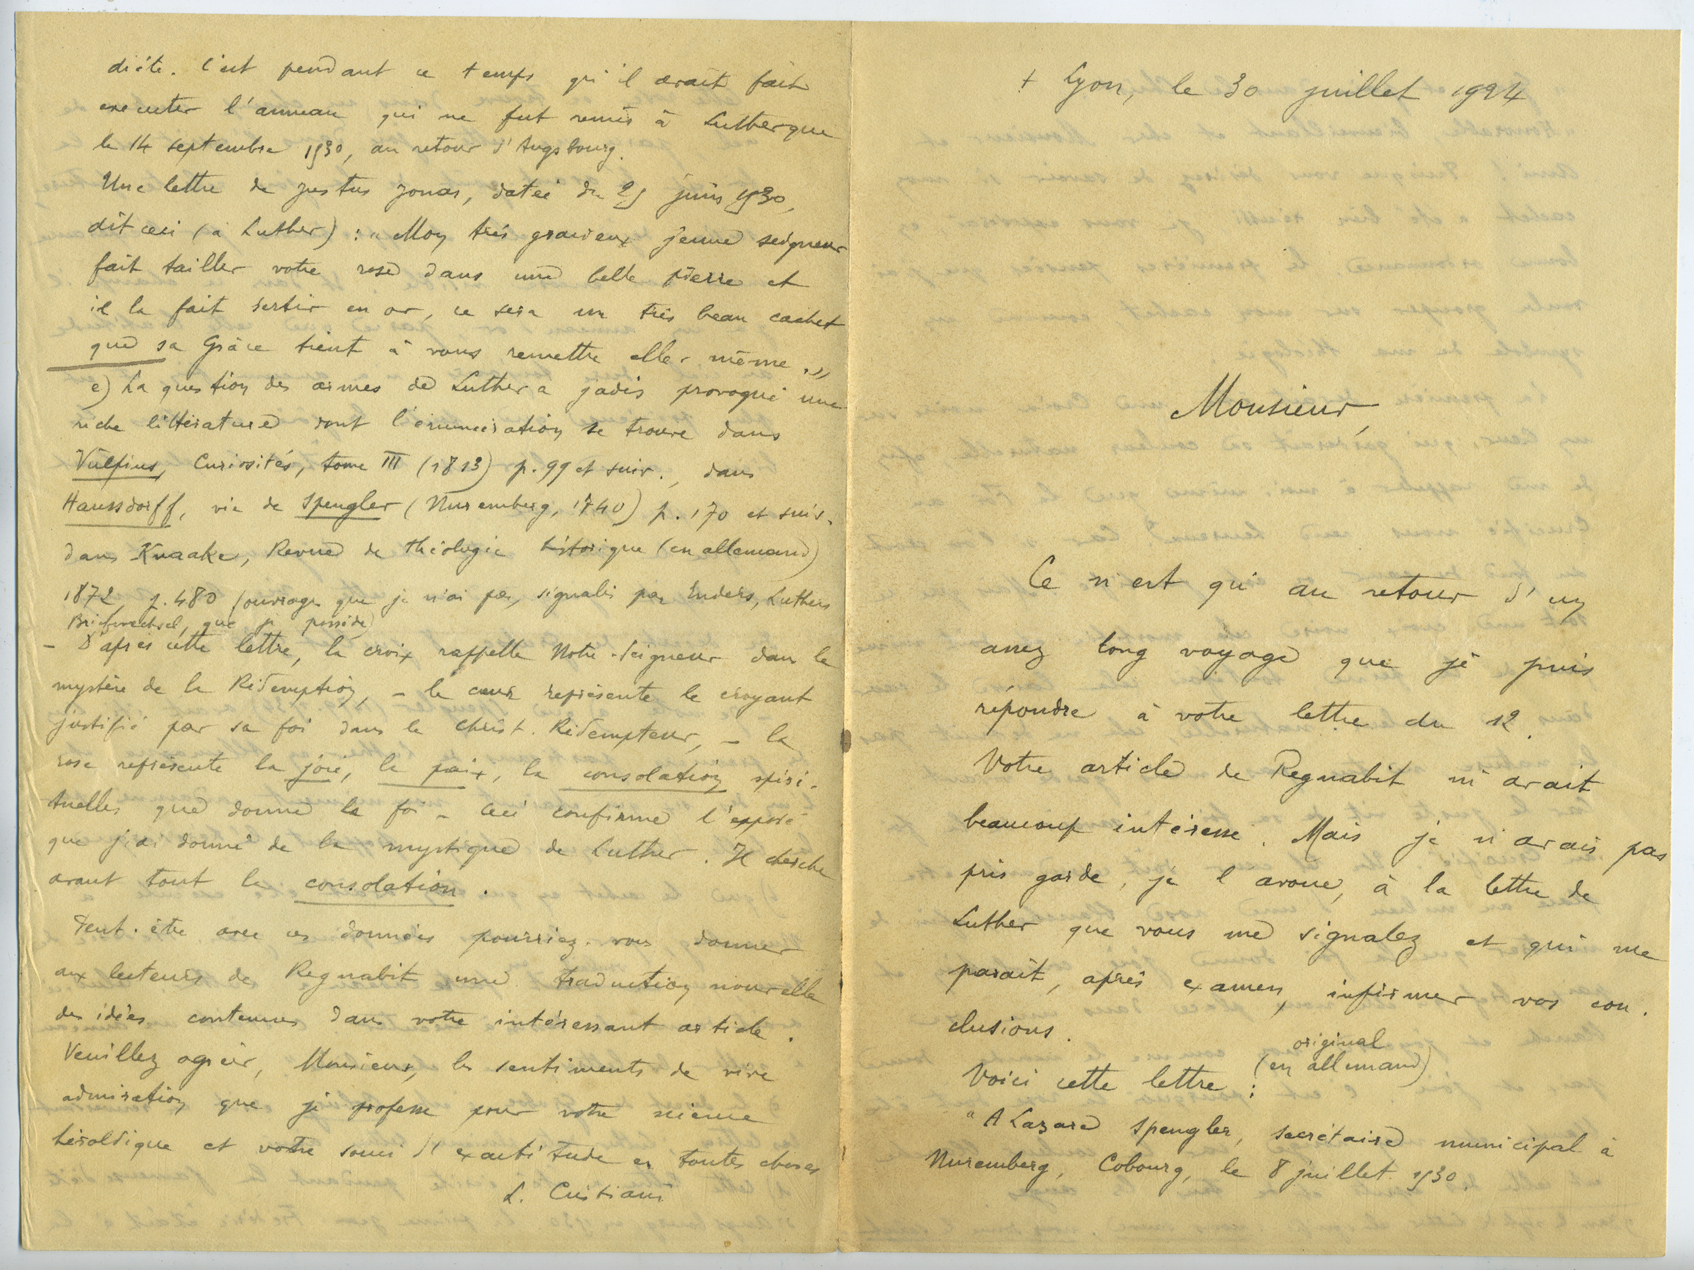 † Lyon, le 30 juillet 1924
Monsieur,
Ce n'est qu'au retour d'un
assez long voyage que je puis
répondre à votre lettre du 12.
Votre article de Regnabit m'avait
beaucoup intéressé. Mais je n'avais pas
pris garde, je l'avoue, à la lettre de
Luther que vous me signalez et qui me
paraît, après examen, infirmer vos con-
clusions.
original
Voici cette lettre (en allemand) :
"A Lazare Spengler, secrétaire municipal à
Nuremberg, Cobourg, le 8 juillet 1530.
diète. C'est pendant ce temps qu'il avait fait
exécuter l'anneau qui ne fut remis à Luther que
le 14 septembre 1530, au retour d'Augsbourg.
Une lettre de Justus Jonas, datée du juin 1530,
dit ceci (à Luther) : "Mon très gracieux jeune seigneur
fait tailler votre rose dans une belle pierre et
il la fait sertir en or, ce sera un très beau cachet
que sa Grâce tient à vous remettre elle-même."
e) La question des armes de Luther a jadis provoqué une
riche littérature dont l'énumération se trouve dans
Vulpius, Curiosités, tome III (1813) p. 99 et suiv., dans
Haussdorff, vie de Spengler (Nuremberg, 1740) p. 170 et suiv.
dans Knaake, Revue de théologie historique (en allemand)
1872 p. 480 (ouvrages que je n'ai pas, signalés par Enders, Luthers
Briefwechsel, que je possède
- D'après cette lettre, la croix rappelle Notre-Seigneur dans le
mystère de la Rédemption, - le cœur représente le croyant
justifié par sa foi dans le Christ-Rédempteur, - la
rose représente la joie, la paix, la consolation spiri-
tuelles que donne la foi - ceci confirme l'exposé
que j'ai donné de la mystique de Luther. Il cherche
avant tout la consolation.
Peut-être avec ces données pourriez-vous donner
aux lecteurs de Regnabit une traduction nouvelle
des idées contenues dans votre intéressant article.
Veuillez agréer, Monsieur, les sentiments de vive
admiration que je professe pour votre science
héraldique et votre souci d'exactitude en toutes choses
L. Cristiani